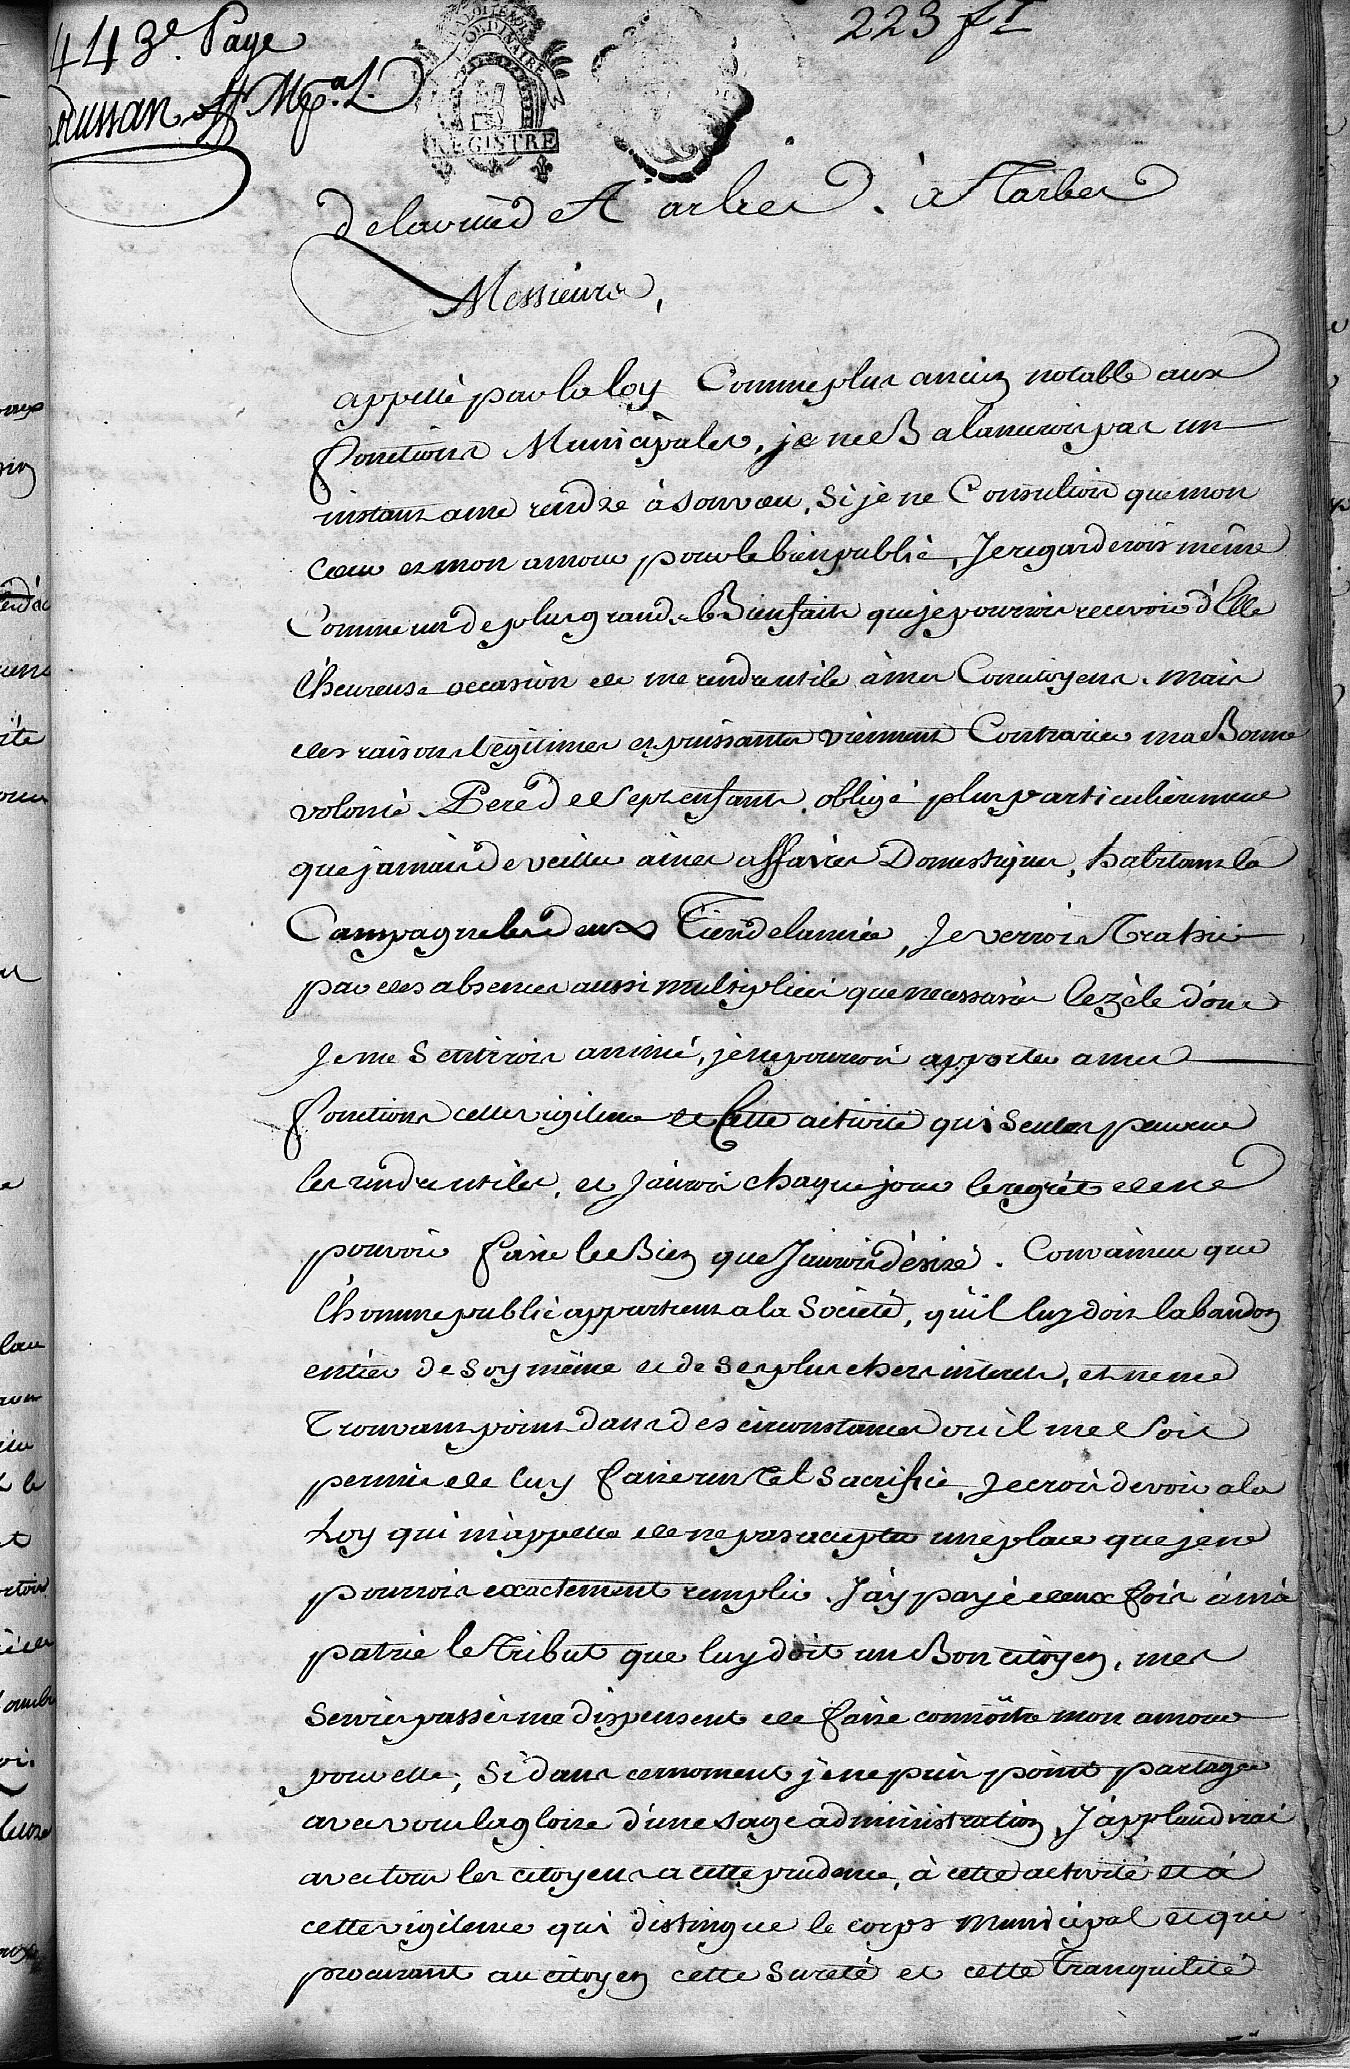 443e. Page
223 ft
Dussan off Mpal.
ORDINAIRE
REGISTRE
de la ville de Tarbes. à Tarbes
Messieurs,
appellé par la loy Comme plus ancien notable aux
fonctions Municipales, je ne Balancerois pas un
instant a me rendre à son vœu, si je ne Consultois que mon
cœur et mon amour pour le bien public, Je regarderois même
Comme un de plus grands Bienfaits que je pourrois recevoir d'Elle
l'heureuse occasion de me rendre utile à mes Concitoyens. mais
des raisons légitimes et puissantes viennent Contrarier ma Bonne
volonté. Pere de Sept enfants, obligé plus particulierement
que jamais de veiller a mes affaires Domestiques, habitant la
Campagne les deux Tiers de lannée, Je verrois Trahir
par des absences aussi multipliées que necessaires le zèle dont
Je me Sentirois animé, je ne pourrois apporter a mes
fonctions cette vigilence et Cette activité qui Seules peuvent
les rendre utiles, et J'aurois chaque jour le regrèt de ne
pouvoir faire le Bien que J'aurois désiré. Convaincu que
l'homme public appartient a la Société, qu'il luy doit labandon
entier de soy même et de ses plus chers interets, et ne me
Trouvant point dans des circonstances ou il me Soit
permis de luy faire un Tel Sacrifice, Je crois devoir a la
Loy qui m'appelle de ne pas accepter une place que je ne
pourrois exactement remplir. J'ay payé deux fois à ma
patrie le Tribut que luy doit un Bon citoyen, mes
Services passés me dispensent de faire connoître mon amour
pour elle; Si dans ce moment je ne puis point partager
avec vous la gloire d'une sage administration, J'applaudirai
avec tous les citoyens a cette prudence, à cette activité et à
cette vigilence qui distingue le corps municipal et qui
procurant au citoyen cette Sureté et cette Tranquilité